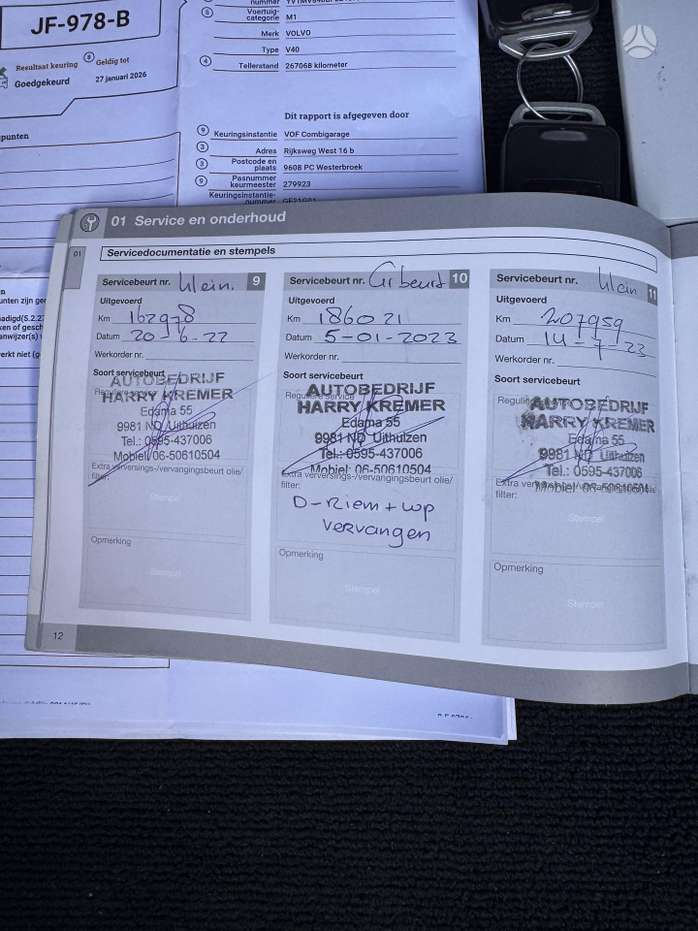 JF-978-B
Resultaat keuring
Goedgekeurd
8
Geldig tot
27 januari 2026
punten
nummer
5
Voertuig-
categorie M1
Merk VOLVO
Type V40
4
Tellerstand 267068 kilometer
Dit rapport is afgegeven door
9
Keuringsinstantie VOF Combigarage
3
Adres Rijksweg West 16 b
3
Postcode en
plaats 9608 PC Westerbroek
9
Pasnummer
keurmeester 279923
Keuringsinstantie-
nummer
01 Service en onderhoud
01
Servicedocumentatie en stempels
Servicebeurt nr. klein. 9
Uitgevoerd
Km 162978
Datum 20-6-22
Werkorder nr.
Soort servicebeurt
AUTOBEDRIJF
HARRY KREMER
Edama 55
9981 ND Uithuizen
Tel.: 0595-437006
Mobiel: 06-50610504
Extra verversings-/vervangingsbeurt olie/
filter:
Stempel
Opmerking
Stempel
12
Servicebeurt nr. Gr beurt 10
Uitgevoerd
Km 186021
Datum 5-01-2023
Werkorder nr.
Soort servicebeurt
Reguliere service
AUTOBEDRIJF
HARRY KREMER
Edama 55
9981 ND Uithuizen
Tel.: 0595-437006
Mobiel: 06-50610504
Extra verversings-/vervangingsbeurt olie/
filter:
D-Riem + wp
vervangen
Opmerking
Stempel
Servicebeurt nr. klein 11
Uitgevoerd
Km 207959
Datum 14-7-23
Werkorder nr.
Soort servicebeurt
AUTOBEDRIJF
HARRY KREMER
Edama 55
9981 ND Uithuizen
Tel.: 0595-437006
Mobiel: 06-50610504
Extra verversings-/vervangingsbeurt olie/
filter:
Stempel
Opmerking
Stempel